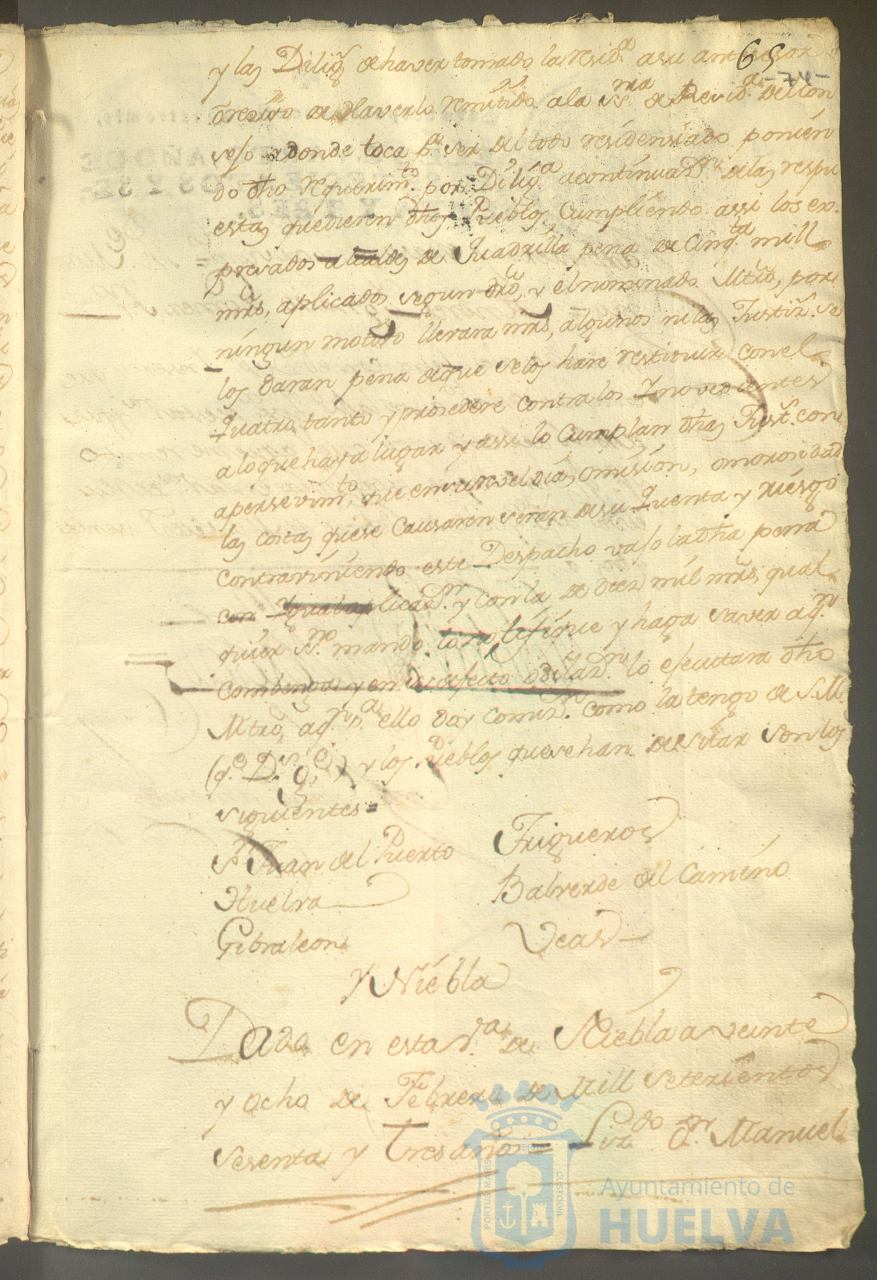 65
-74-
y las Dilig.s de haver tomado la resid.a a su antesesor
o resivo de Haverlo remitido a la S.ria de Resid.a del Con
sejo adonde toca p.a ser del todo residensiado ponien
do dho requerim.to por Dilig.a a continuaz.on de las respu
estas que dieren dhos Pueblos Cumpliendo assi los ex
presados alcaldes de Quadrilla pena de Cinq.ta mill
mrs, aplicados segun dro, y el nomenado Mtro, por
ningun motivo llevara mrs, algunos ni las Justiz.s se
los daran pena de que se los hare restituir con el
Quatro tanto y prosedere contra los Ynovedientes
a lo que haya lugar y assi lo Cumplan dhas Just.s con
apersevim.to que en un del dia, omision, o morosidad
las costas que se Causaren seran de su Quenta y riesgo
contraviniendo este Despacho vajo la dha pena
con Ygual aplicaz.on y con la de diez mil mrs, qual
quier S.no mando lo notifique y haga saver a q.n
combenga y en defecto de el lo efecutara dho
Mtro, a q.n p.a ello doy Comiz.on como la tengo de S.M.
(q.e D.s g.e) y los Pueblos que se han de sitar son los
siguientes =
S.n Juan del Puerto Trigueros
Huelva Balverde del Camino
Gibraleon Veas
y Niebla
Dada en esta v.a de Niebla a veinte
y ocho de Febrero de Mill setesientos
sesenta y tres años = Liz.do D.n Manuel
Ayuntamiento de
HUELVA